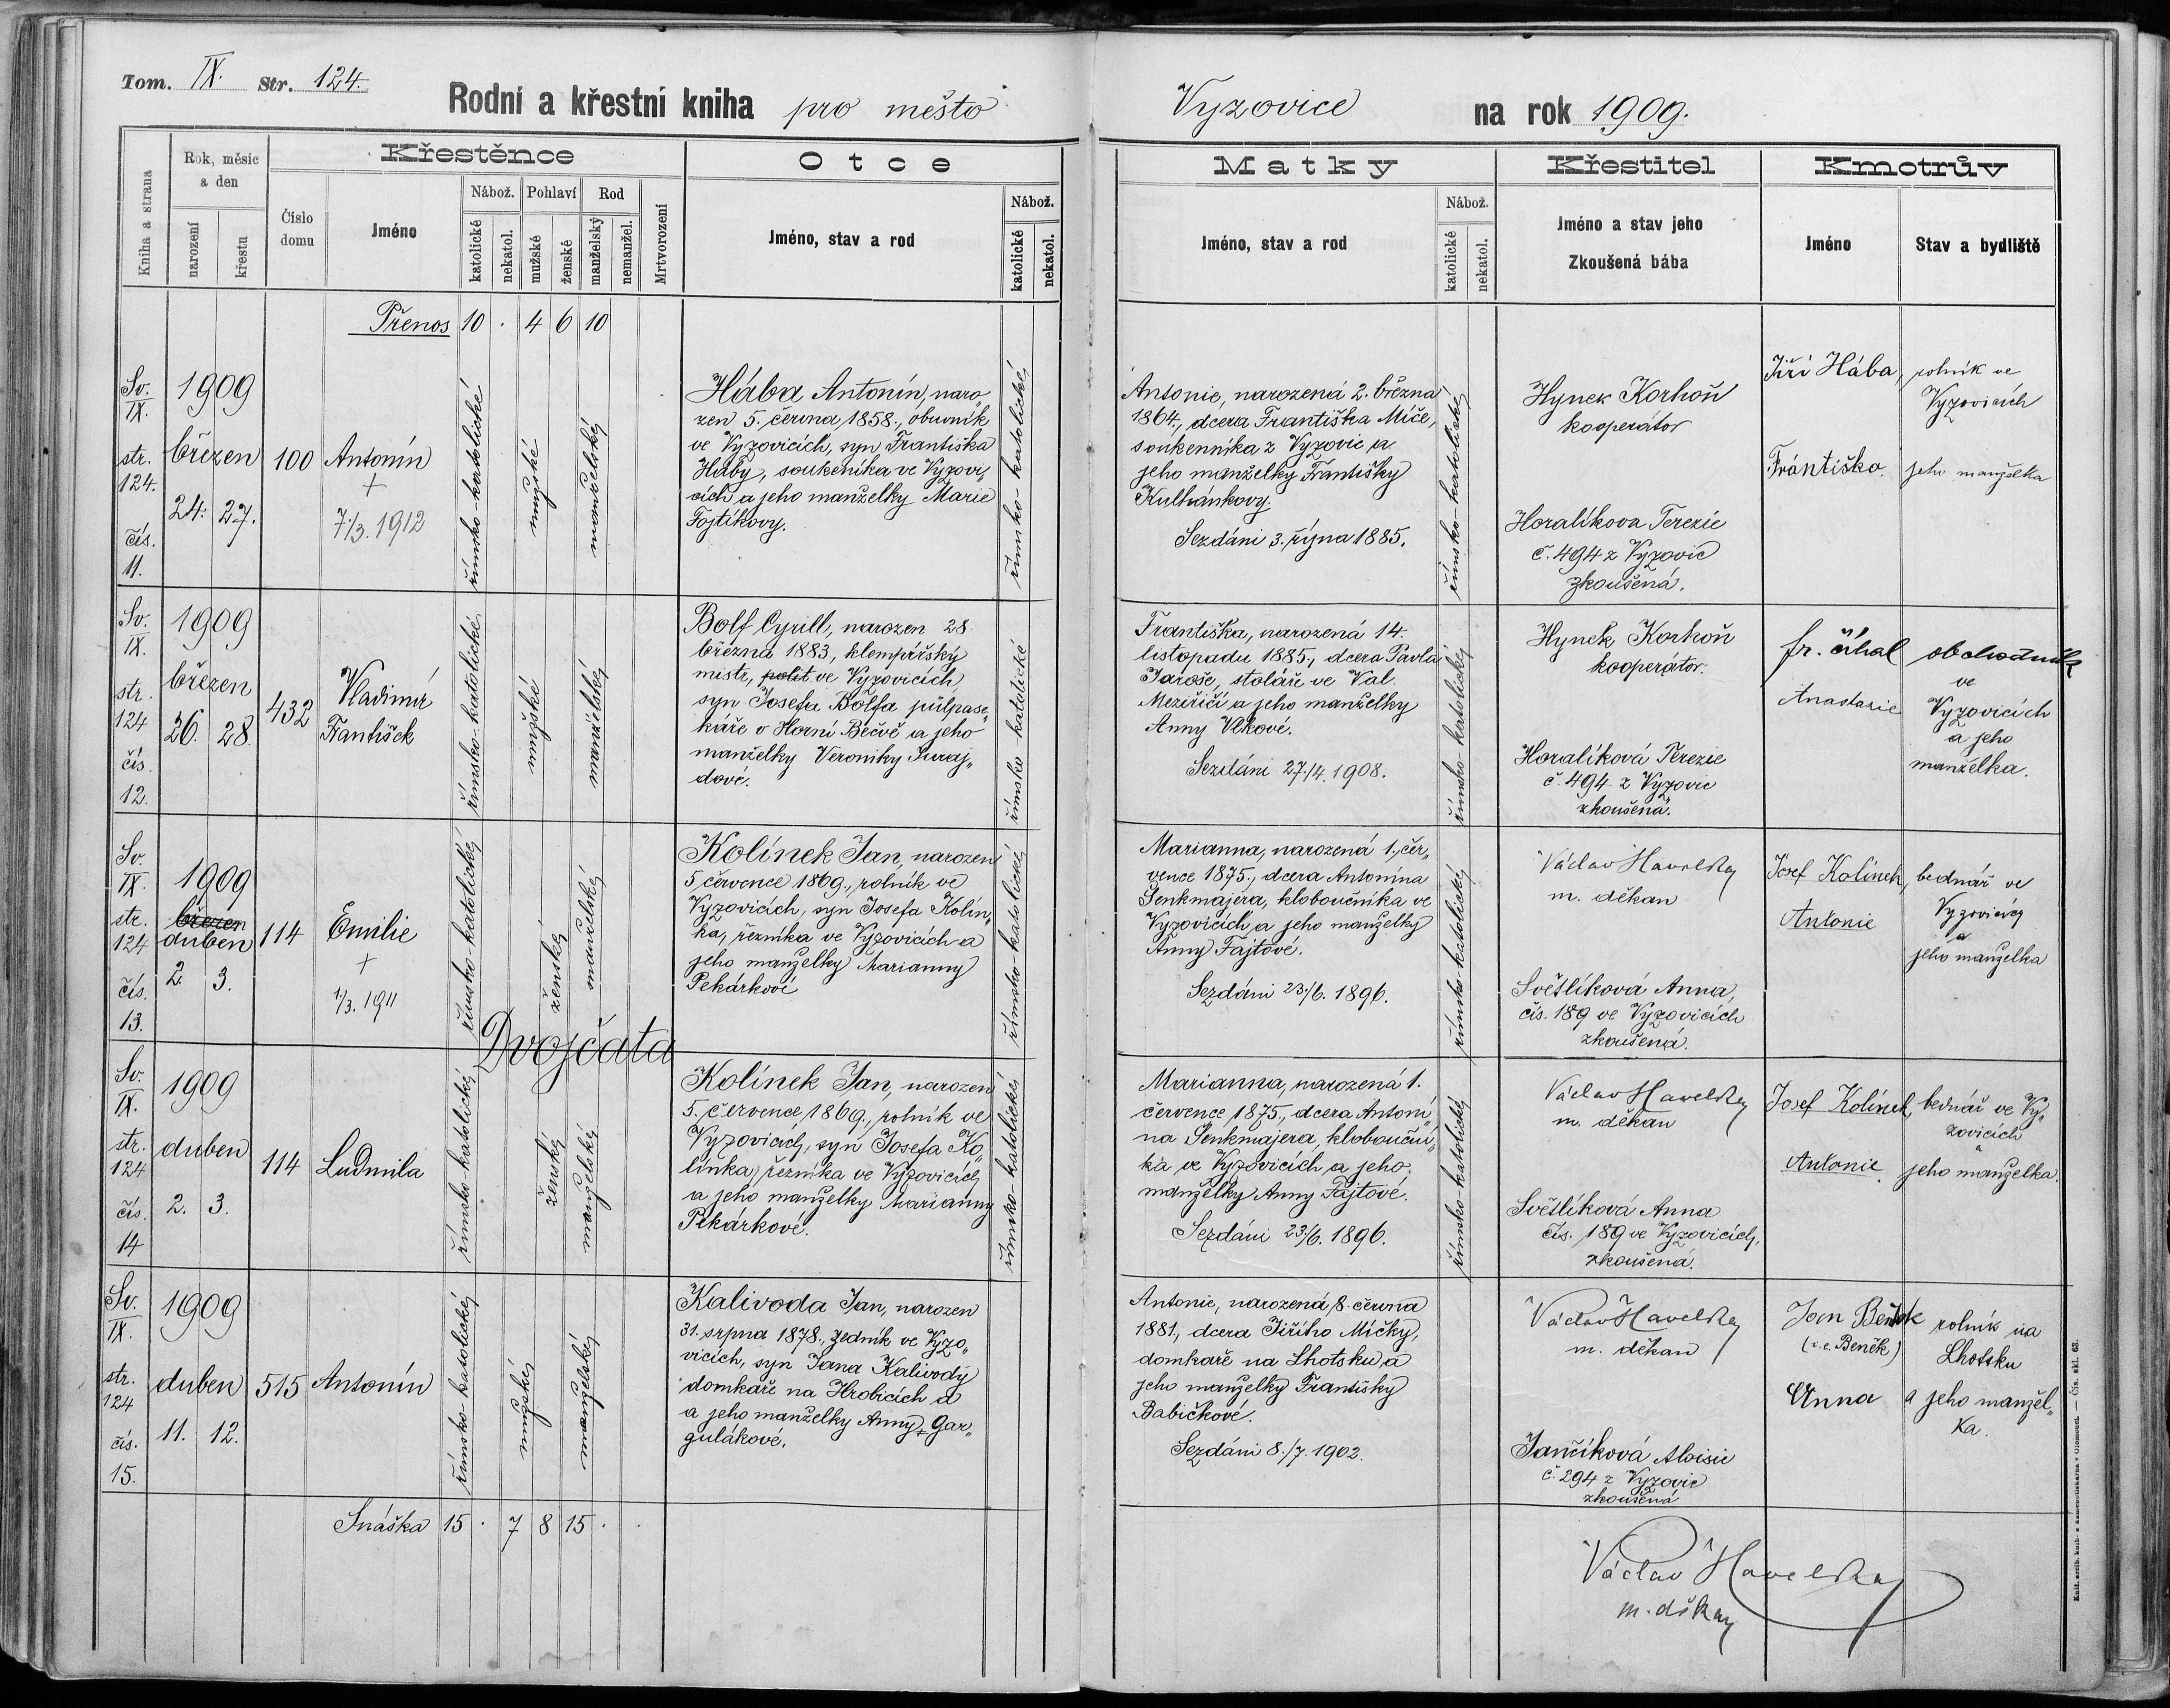 Tom. IX. Str. 124.
Rodní a křestní kniha pro město Vyzovice na rok 1909.
Kniha a strana
Rok, měsíc a den
narození
křestu
Číslo domu
Křestěnce
Jméno
Nábož.
katolické
nekatol.
Pohlaví
mužské
ženské
Rod
manželský
nemanžel.
Mrtvorození
Otce
Jméno, stav a rod
Nábož.
katolické
nekatol.
Matky
Jméno, stav a rod
Nábož.
katolické
nekatol.
Křestitel
Jméno a stav jeho
Zkoušená bába
Kmotrův
Jméno
Stav a bydliště
Přenos 10 . 4 6 10
Sv.
IX.
str.
124.
čís.
11.
1909
březen
24. 27.
100
Antonín
+
7/3. 1912
římsko-katolické
mužské
manželské
Hába Antonín, naro„
zen 5. června 1858., obuvník
ve Vyzovicích, syn Františka
Háby, soukeníka ve Vyzovi„
cích a jeho manželky Marie
Fojtíkovy.
římsko-katolické
Antonie, narozená 2. března
1864., dcera Františka Míče,
soukenníka z Vyzovic a
jeho manželky Františky
Kulhánkovy.
Sezdáni 3. října 1885.
římsko-katolické
Hynek Korhoň
kooperátor
Horalíkova Terezie
č. 494 z Vyzovic
zkoušená.
Jiří Hába, rolník ve
Vyzovicích
Františka jeho manželka
Sv.
IX.
str.
124
čís.
12.
1909
březen
26. 28.
432
Vladimír
František
římsko-katolické
mužské
manželské
Bolf Cyrill, narozen 28.
března 1883, klempířský
mistr, polit ve Vyzovicích
syn Josefa Bolfa půlpase„
káře v Horní Bečvě a jeho
manželky Veroniky Juraj„
dové.
římsko-katolické
Františka, narozená 14.
listopadu 1885., dcera Pavla
Jaroše, stoláře ve Val.
Meziříčí a jeho manželky
Anny Vlkové.
Sezdáni 27./4. 1908.
římsko-katolické
Hynek Korhoň
kooperátor.
Horalíková Terezie
č. 494 z Vyzovic
zkoušená.
fr. číhal obchodník
ve
Anastazie Vyzovicích
a jeho
manželka.
Sv.
IX.
str.
124
čís.
13.
1909
březen
duben
2. 3.
114
Emilie
+
1/3. 1911
římsko-katolické
ženské
manželské
Kolínek Jan, narozen
5. července 1869., rolník ve
Vyzovicích, syn Josefa Kolín„
ka, řezníka ve Vyzovicích a
jeho manželky Marianny
Pekárkové
římsko-katolické
Marianna, narozená 1. čer„
vence 1875., dcera Antonína
Šenkmajera, kloboučníka ve
Vyzovicích a jeho manželky
Anny Fajtové.
Sezdáni 23./6. 1896.
římsko-katolické
Václav Havelka
m. děkan
Světlíková Anna,
čís. 189 ve Vyzovicích
zkoušená.
Josef Kolínek, bednář ve
Vyzovicích
Antonie a
jeho manželka
Dvojčata
Sv.
IX.
str.
124
čís.
14
1909
duben
2. 3.
114
Ludmila
římsko-katolické
ženské
manželské
Kolínek Jan, narozen
5. července 1869., rolník ve
Vyzovicích, syn Josefa Ko„
línka, řezníka ve Vyzovicích
a jeho manželky Marianny
Pekárkové.
římsko-katolické
Marianna, narozená 1.
července 1875., dcera Antoní„
na Šenkmajera, klobouční„
ka ve Vyzovicích a jeho
manželky Anny Fajtové.
Sezdáni 23./6. 1896.
římsko-katolické
Václav Havelka
m. děkan
Světlíková Anna
čís. 189 ve Vyzovicích,
zkoušená.
Josef Kolínek, bednář ve Vy„
zovicích
a
Antonie jeho manželka.
Sv.
IX.
str.
124
čís.
15.
1909
duben
11. 12.
515
Antonín
římsko-katolické
mužské
manželské
Kalivoda Jan, narozen
31. srpna 1878., zedník ve Vyzo„
vicích, syn Jana Kalivody
domkaře na Hrobicích a
a jeho manželky Anny Gar„
gulákové.
Antonie, narozená 8. června
1881., dcera Jiřího Mičky,
domkaře na Lhotsku a
jeho manželky Františky
Babičkové.
Sezdáni 8./7. 1902.
Václav Havelka
m. děkan
Jančíková Aloisie
č. 294 z Vyzovic
zkoušená
Jan rolník na
(r.e. Beněk) Lhotsku
Anna a jeho manžel„
ka.
Snáška 15 . 7 8 15 . .
Václav Havelka
m. děkan